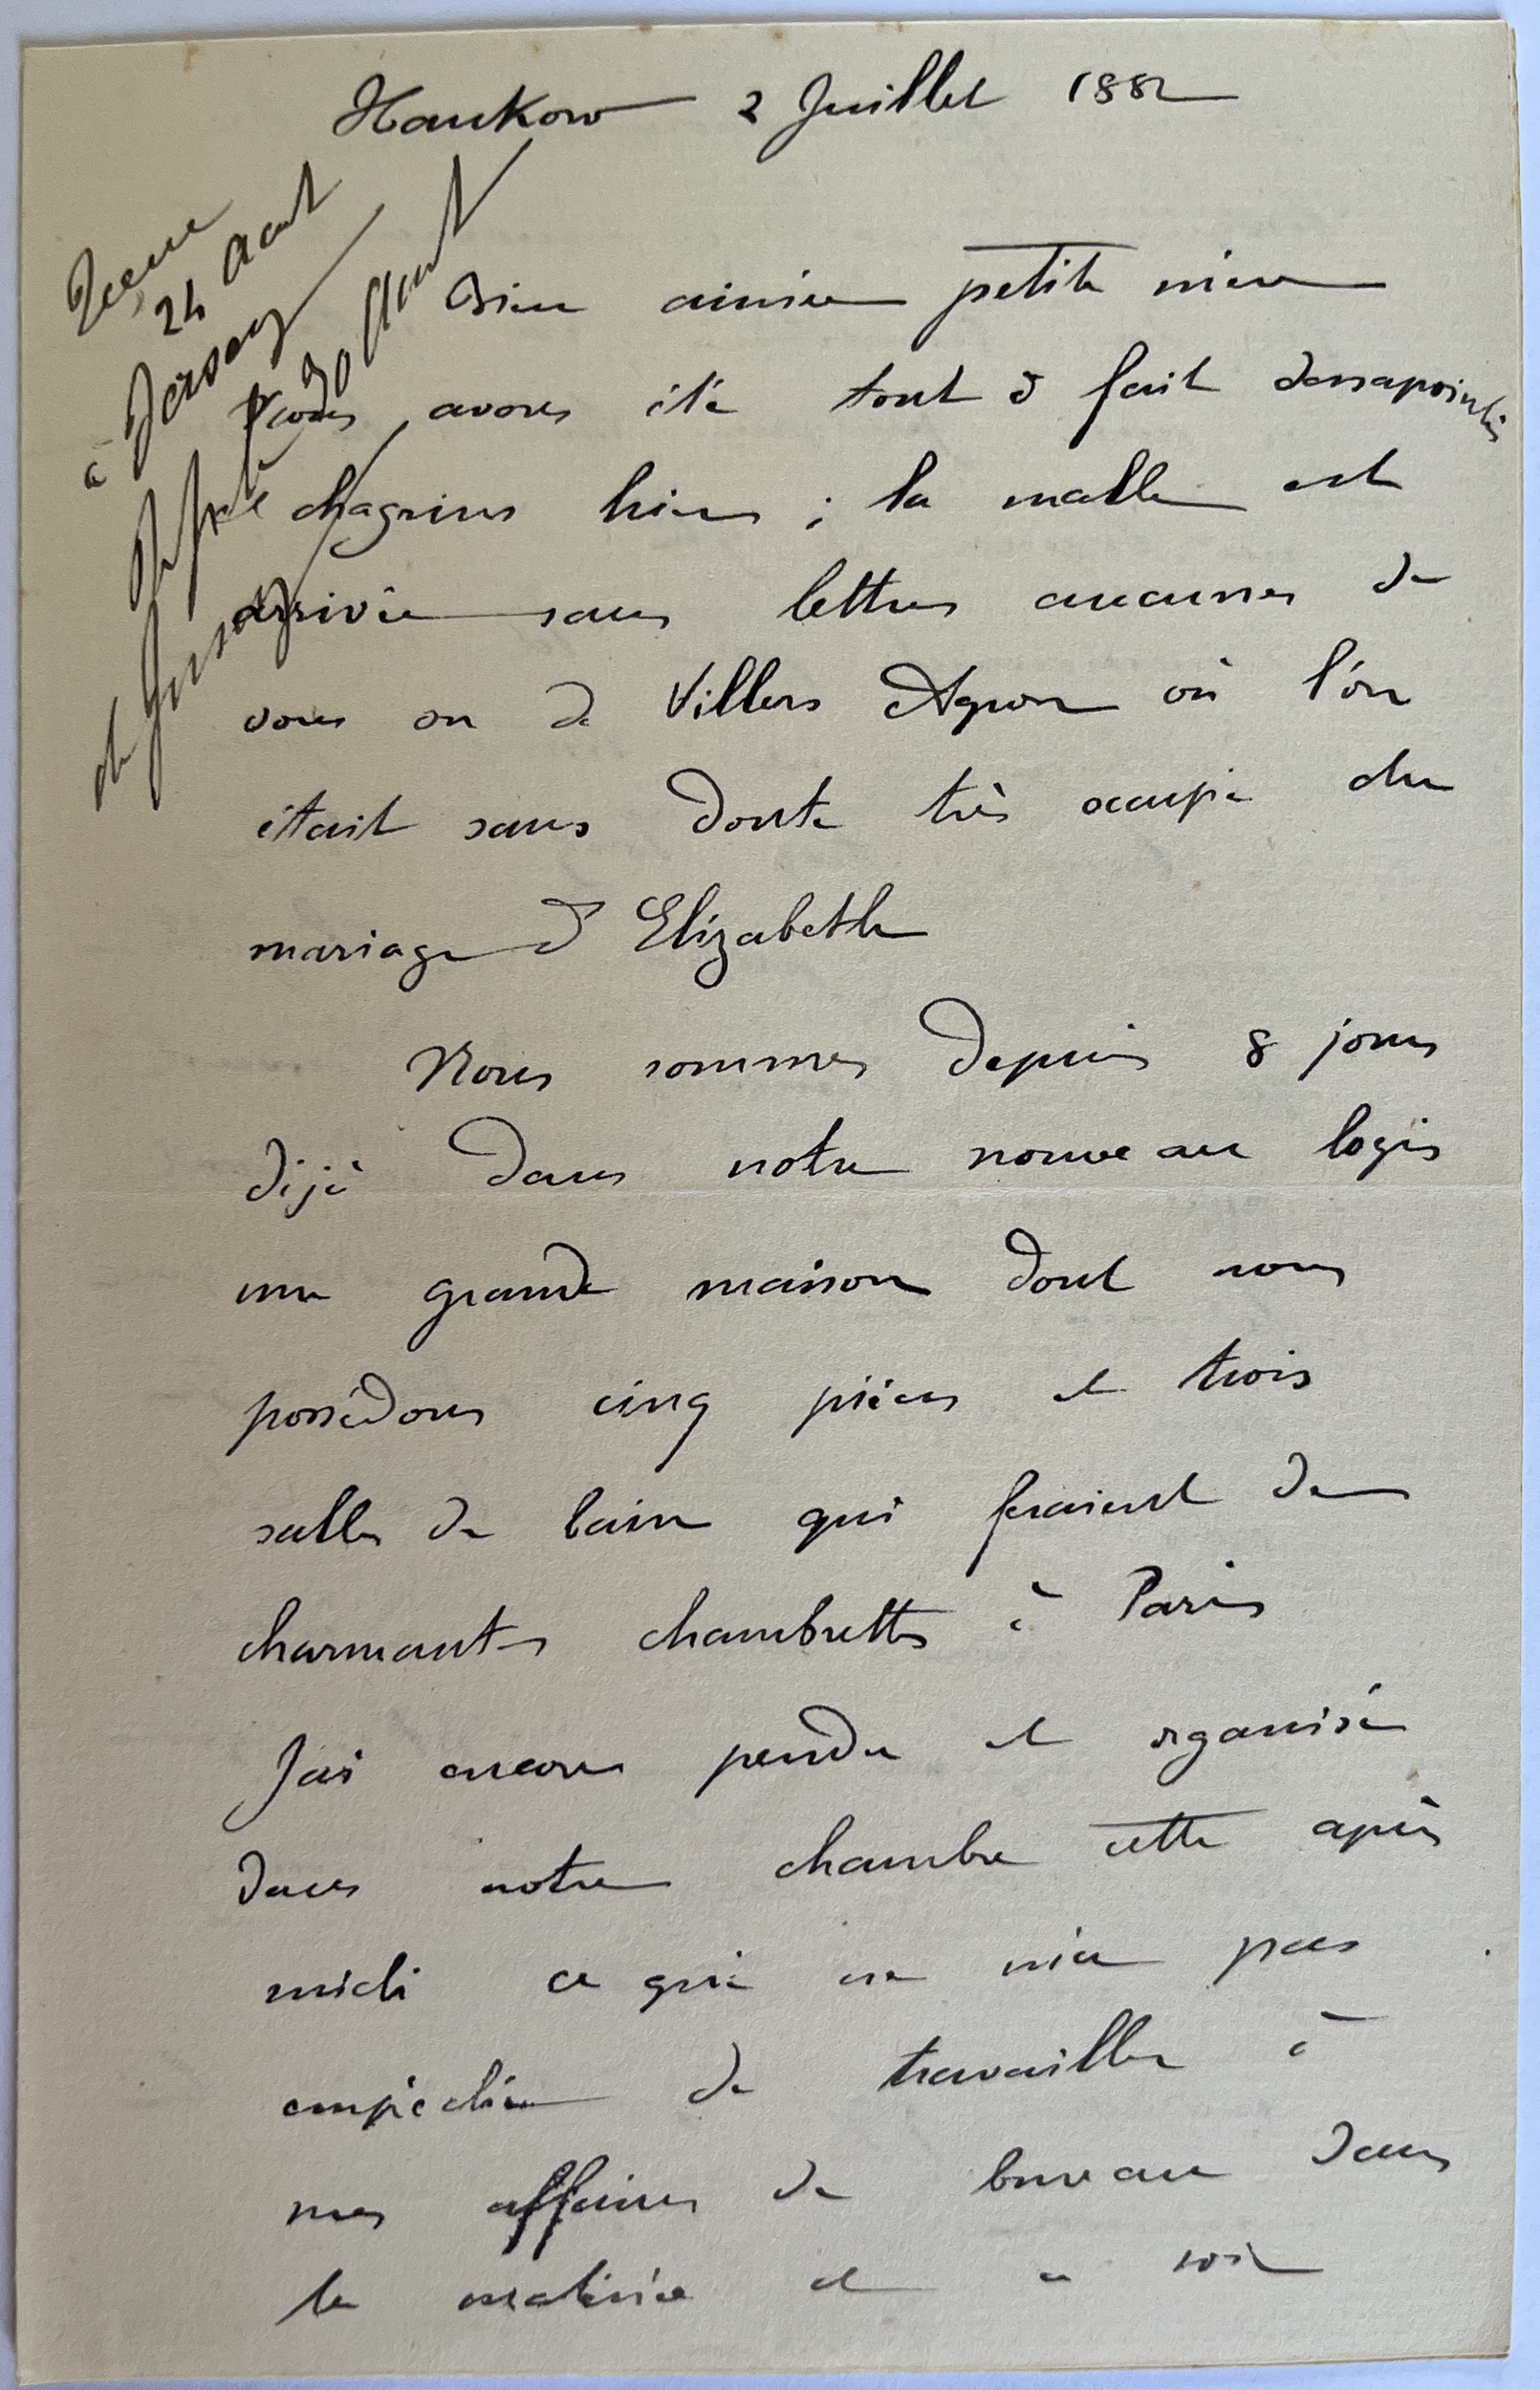 Hankow 2 Juillet 1882
Recue
24 Aout
à Jersey
30 Aout
de Jersey
Bien aimée petite mère
Nous avons été tout à fait dessapointés
et chagrins hier ; la malle est
arrivée sans lettres aucunes de
vous ou de Villers Agron où l'on
était sans doute très occupé du
mariage d'Elizabeth
Nous sommes depuis 8 jours
déjà dans notre nouveau logis
une grande maison dont nous
possédons cinq pièces et trois
salles de bain qui feraient de
charmantes chambrettes à Paris
J'ai encore pendu et organisé
dans notre chambre cette après
midi ce qui ne m'a pas
empêchée de travailler à
mes affaires de bureau dans
la matinée et ce soir